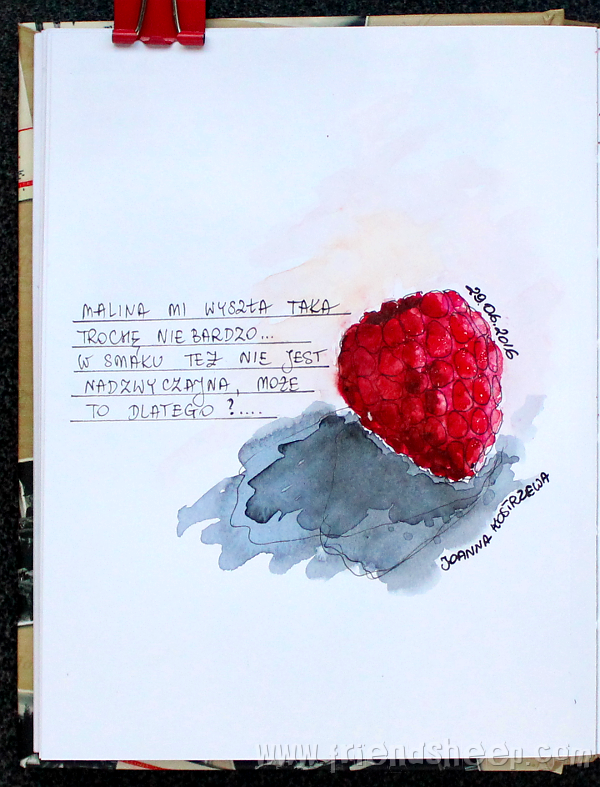 MALINA MI WYSZŁA TAKA
TROCHĘ NIE BARDZO...
W SMAKU TEŻ NIE JEST
NADZWYCZAJNA, MOŻE
TO DLATEGO ?....
29.06.2016
JOANNA KOSTRZEWA
www.friendsheep.com